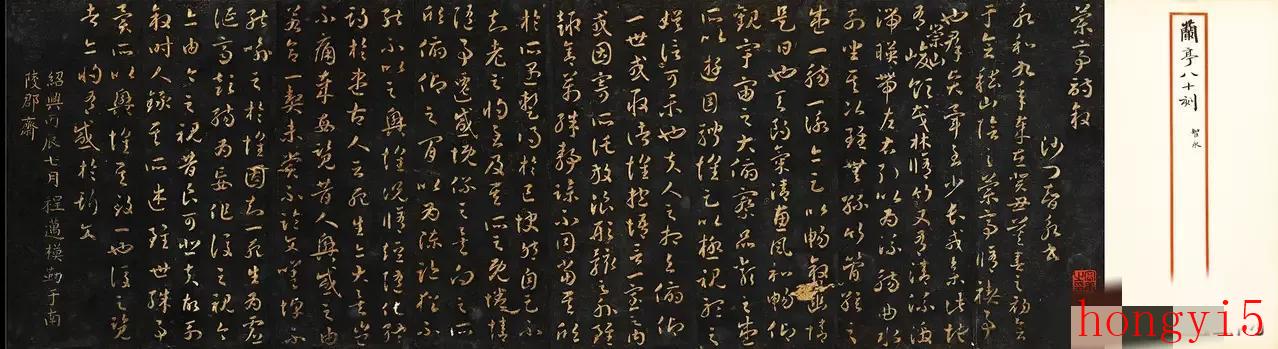 蘭亭八十刻
智永
蘭亭詩敘
沙門智永書
永和九年歲在癸丑莫春之初會
于會稽山陰之蘭亭脩禊事
也群賢畢至少長咸集此地
崇山
有峻領茂林脩竹又有清流激
湍暎帶左右引以為流觴曲水
列坐其次雖無絲竹管弦之
盛一觴一詠亦足以暢敘幽情
是日也天朗氣清惠風和暢仰
觀宇宙之大俯察品類之盛
所以遊目騁懷足以極視聽之
娛信可樂也夫人之相與俯仰
一世或取諸懷抱悟言一室之內
或因寄所託放浪形骸之外雖
趣舍萬殊靜躁不同當其欣
於所遇暫得於己快然自足不
知老之將至及其所之既惓情
隨事遷感慨係之矣向之所
欣俯仰之間以為陳迹猶不
能不以之興懷況脩短隨化終
期於盡古人云死生亦大矣豈
不痛哉每覽昔人興感之由
若合一契未嘗不臨文嗟悼不
能喻之於懷固知一死生為虛
誕齊彭殤為妄作後之視今
亦由今之視昔良可悲夫故列
敘時人錄其所述雖世殊事
異所以興懷其致一也後之覽
者亦將有感於斯文
紹興丙辰七月程邁模勒于南
陵郡齋
hongyi5